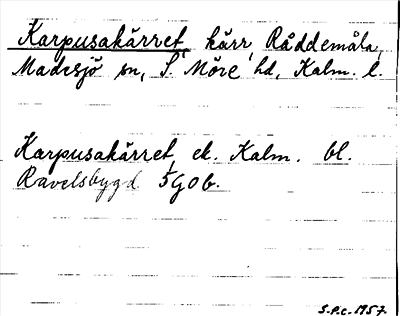 Karpusakärret, kärr, Råddemåla,
Madesjö sn, S. Möre hd, Kalm. l.
Karpusakärret, ek. Kalm. bl.
Ravelsbygd 5G0b.
S.P.C. 1957